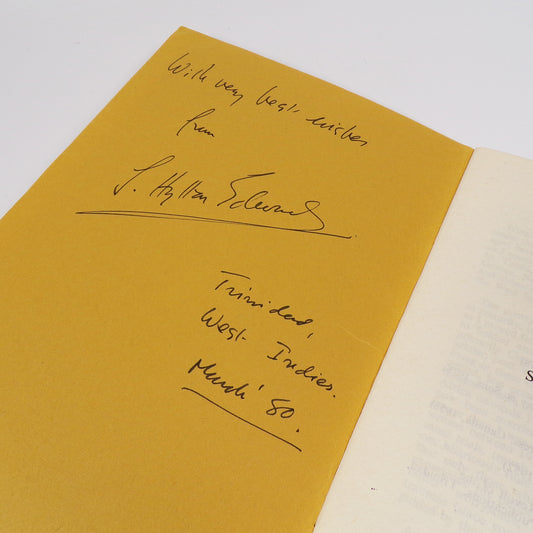 With very best wishes
from
S. Hylton Edwards
Trinidad,
West Indies.
March '80.
S